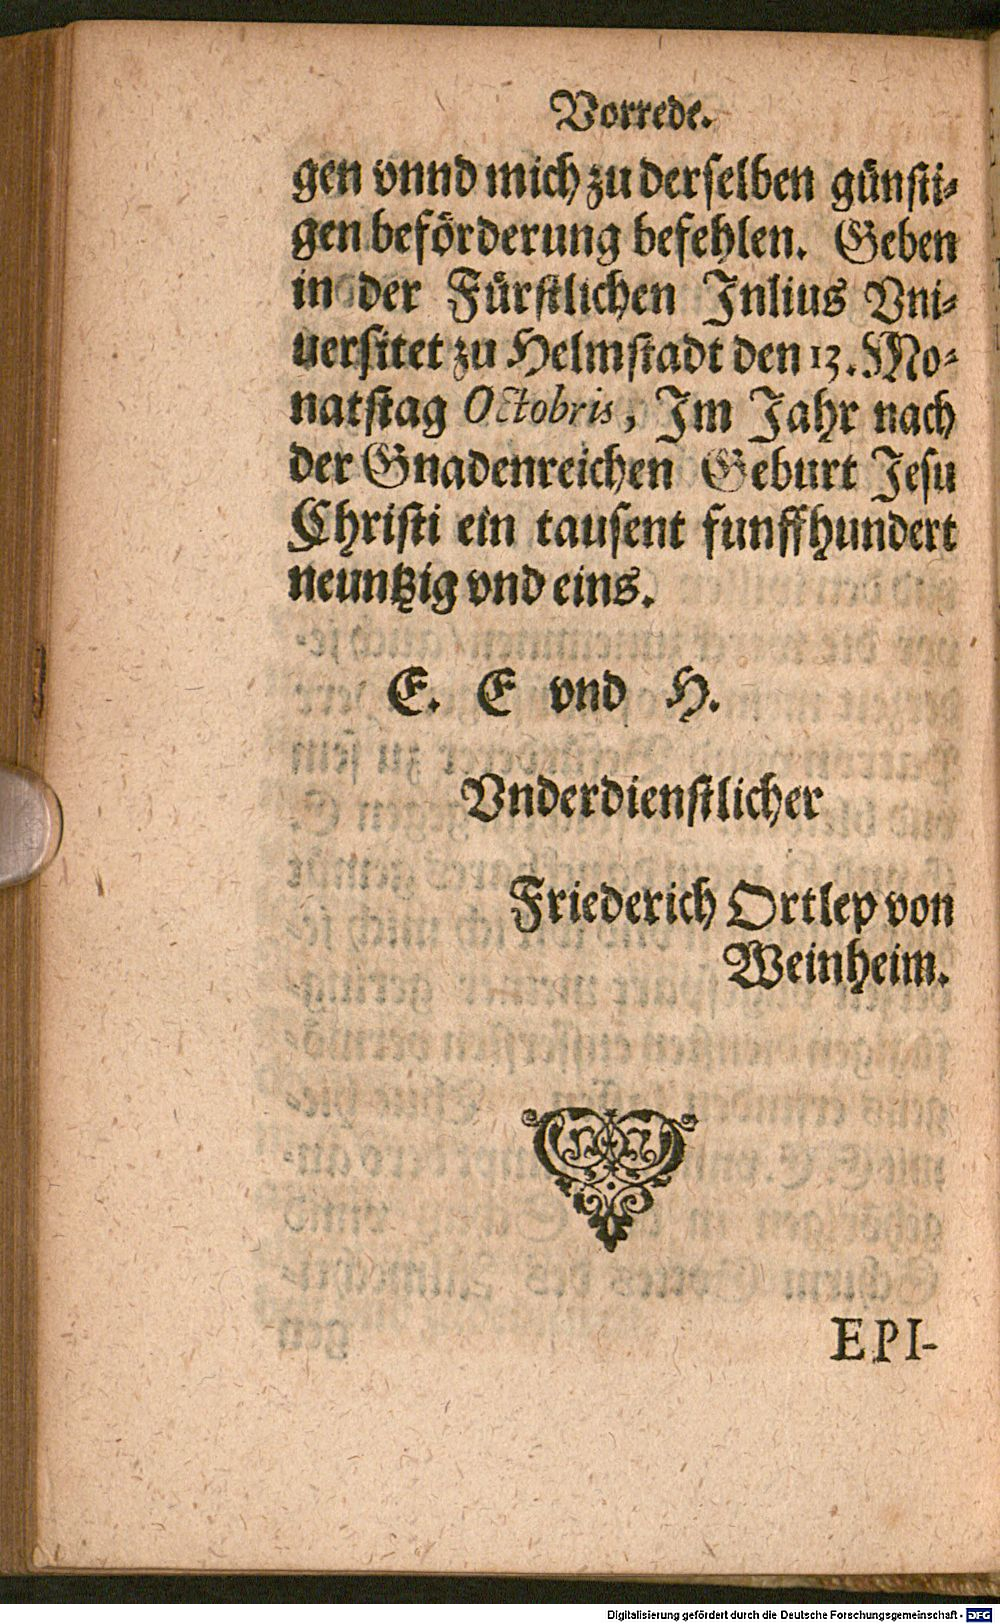 Vorrede.
gen vnnd mich zu derselben günsti-
gen beförderung befehlen. Geben
in der Fürstlichen Jnlius Vni-
uersitet zu Helmstadt den 13. Mo-
natstag Octobris, Im Jahr nach
der Gnadenreichen Geburt Jesu
Christi ein tausent funffhundert
neuntzig vnd eins.
E. E vnd H.
Vnderdienstlicher
Friederich Ortlep von
Weinheim.
EPI-
Digitalisierung gefördert durch die Deutsche Forschungsgemeinschaft - DFG